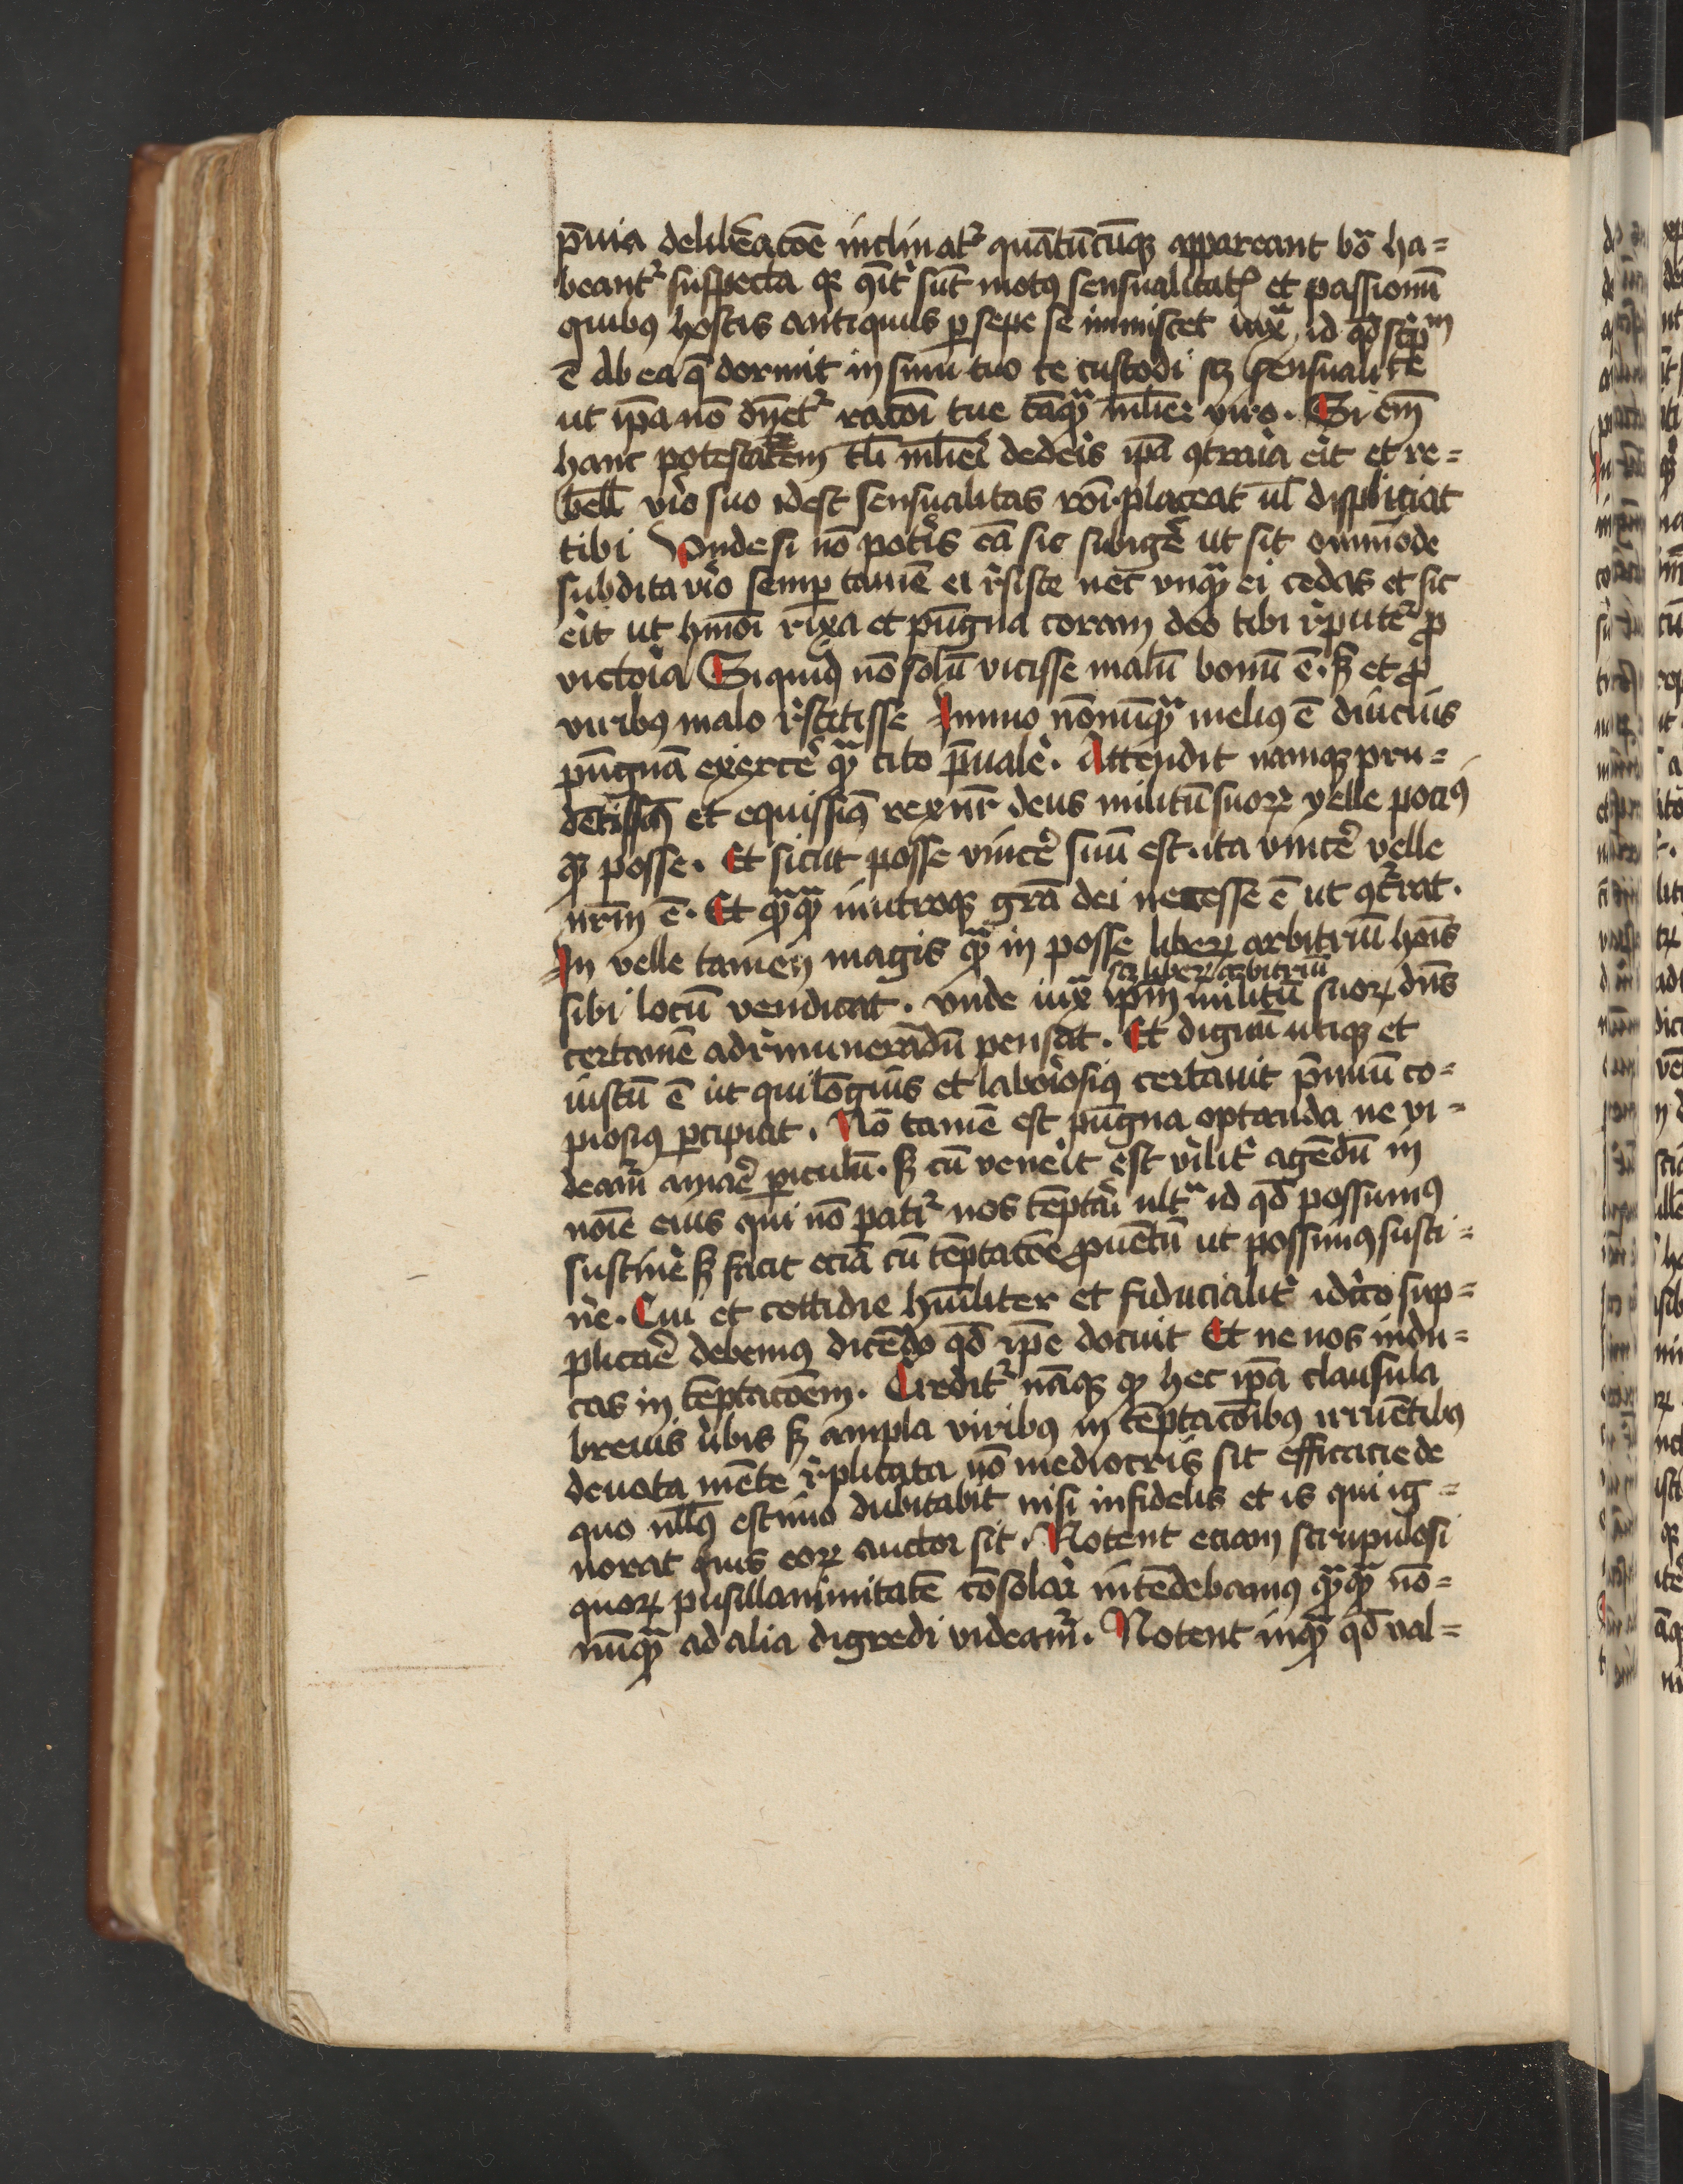 p̄uia delib̄eac̄oe inclinat᷑ quātūcūqꝫ appareant bōa ha=
beant᷑ suspecta qꝛ ꝯit᷑ sūt motꝰ sensualitatꝭ et passionū
quibꝰ hostis antiquus ꝑsepe se inmiscet iuxᵃ id qđ scpᵐ
ē Ab ea q̄ dormit in sinu tuo te custodi sꝫ sensualite
ut ip̄a nō dn̄et᷑ rac̄oi tue tāqᵃ mlier viro. Si em̄
hanc potestatem tli mlieri dederis ip̄a ꝯtraria erit et re=
bell viro suo idest sensualitas roī placeat ul displiciat
tibi Vnde si nō poteris eā sic subigere ut sit om̄imode
subdita viro semꝑ tamē ei rsiste nec vnqᵃ ei cedas et sic
erit ut hmōi rixa et pūgna coram deo tibi rputet᷑ ꝓ
victoria Siquidē nō solū vicisse malū bonū ē. sꝫ et ꝓ
viribꝰ malo rstitisse Immo nōnūqᵃ meliꝰ ē diucius
pūgnā exercere qᵃ cito p̄ualere. Attendit namqꝫ pru=
dētissimꝰ et equissimꝰ rex nr̄ deus militū suoꝝ velle pociꝰ
qᵃ posse. Et sicut posse vincere suū est. ita vincere velle
nrm̄ ē. Et qᵃqᵃ inutroqꝫ grā dei necesse ē ut ꝯcurrat.
In velle tamen magis qᵃ in posse liberꝝ arbitriū hoīs
sꝫ liberꝝ arbitriū
sibi locū vendicat. vnde iuxᵃ ip̄m militū suoꝝ dn̄s
certamē ad rmunerādū pensat. Et dignū utiqꝫ et
iustū ē ut qui lōgius et laboriosiꝰ certauit p̄miū co=
piosiꝰ ꝑcipiat. Nō tamē est pūgna optanda ne vi=
deam᷑ amare ꝑiculū. sꝫ cū venerit est virilit᷑ agēdū in
noīe eius qui nō patit᷑ nos tēptari ultᵃ id qđ possumꝰ
sustinere sꝫ facit eciā cū tēptac̄oe ꝓuentū ut possimꝰ susti=
nere. Cui et cottidie hūiliter et fiducialit᷑ idcirco sup=
plicare debemꝰ dicēdo qđ ip̄e docuit Et ne nos indu=
cas in tēptac̄oem. Credit᷑ nāqꝫ qꝫ hec ip̄a clausula
breuis v᷑bis sꝫ ampla viribꝰ in tēptac̄oibꝰ irruētibꝰ
deuota mēte rplicata nō mediocris sit efficacie de
quo nllꝰ estimo dubitabit nisi infidelis et is qui ig=
norat quis eoꝝ auctor sit. Notent eciam scrupulosi
quoꝝ pusillanimitatē cōsolari intēdebamus qᵃqᵃ nō=
nūqᵃ ad alia digredi videam᷑. Notent inqᵃ qđ val=